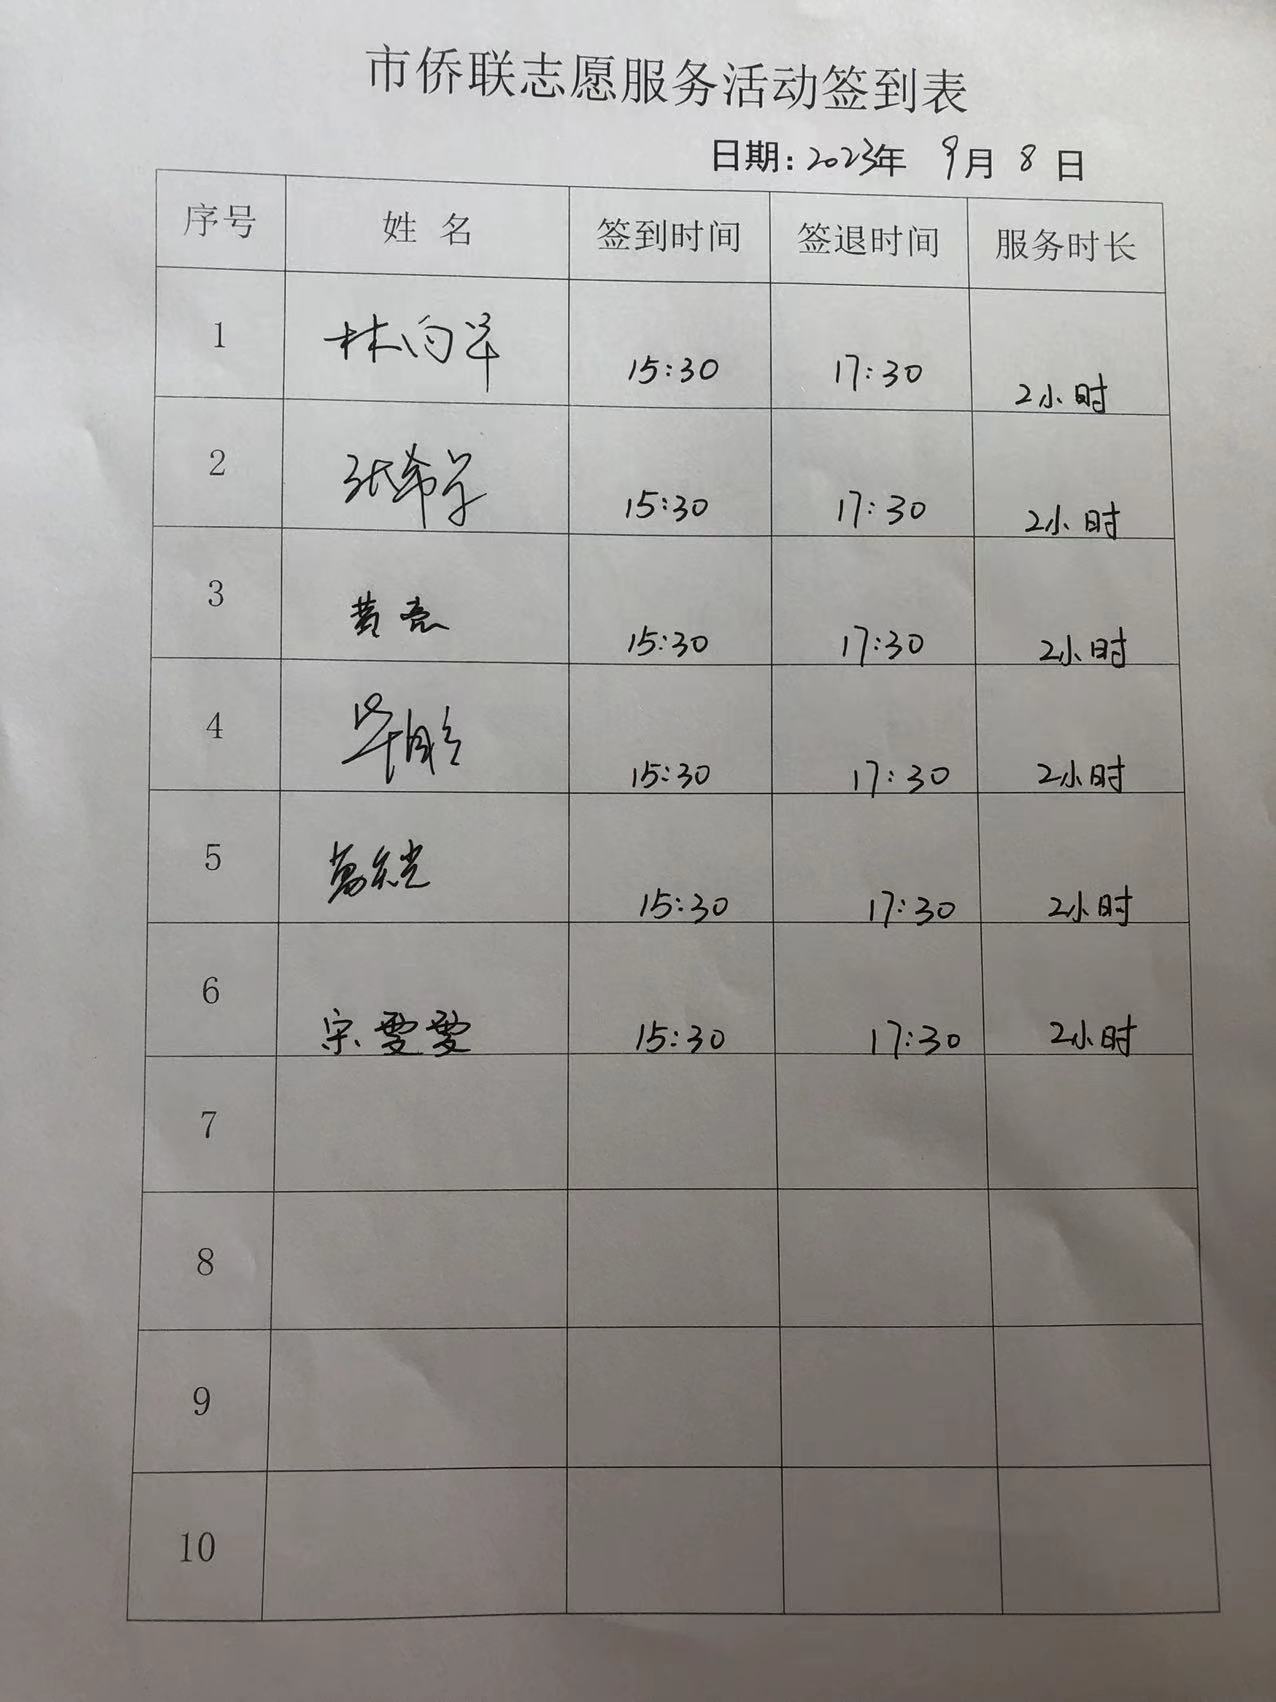 市侨联志愿服务活动签到表
日期: 2023年 9月 8 日
序号 姓 名 签到时间 签退时间 服务时长
1 林向 15:30 17:30 2小时
2 张希 15:30 17:30 2小时
3 黄亮 15:30 17:30 2小时
4 15:30 17:30 2小时
5 15:30 17:30 2小时
6 宗雯雯 15:30 17:30 2小时
7
8
9
10